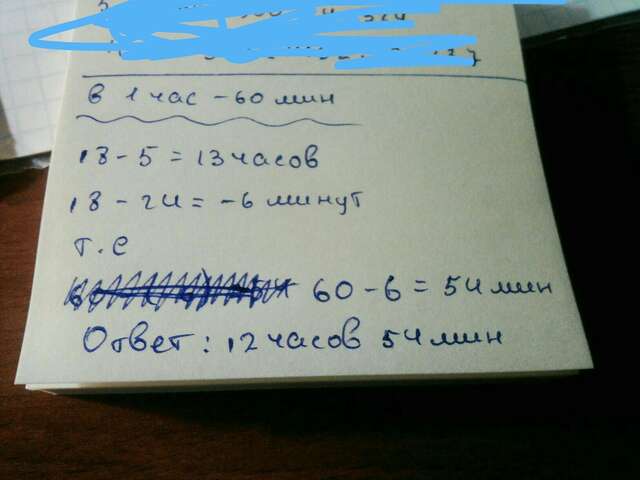 В 1 час - 60 мин
18 - 5 = 13 часов
18 - 24 = -6 минут
т.е
60 - 6 = 54 мин
Ответ: 12 часов 54 мин